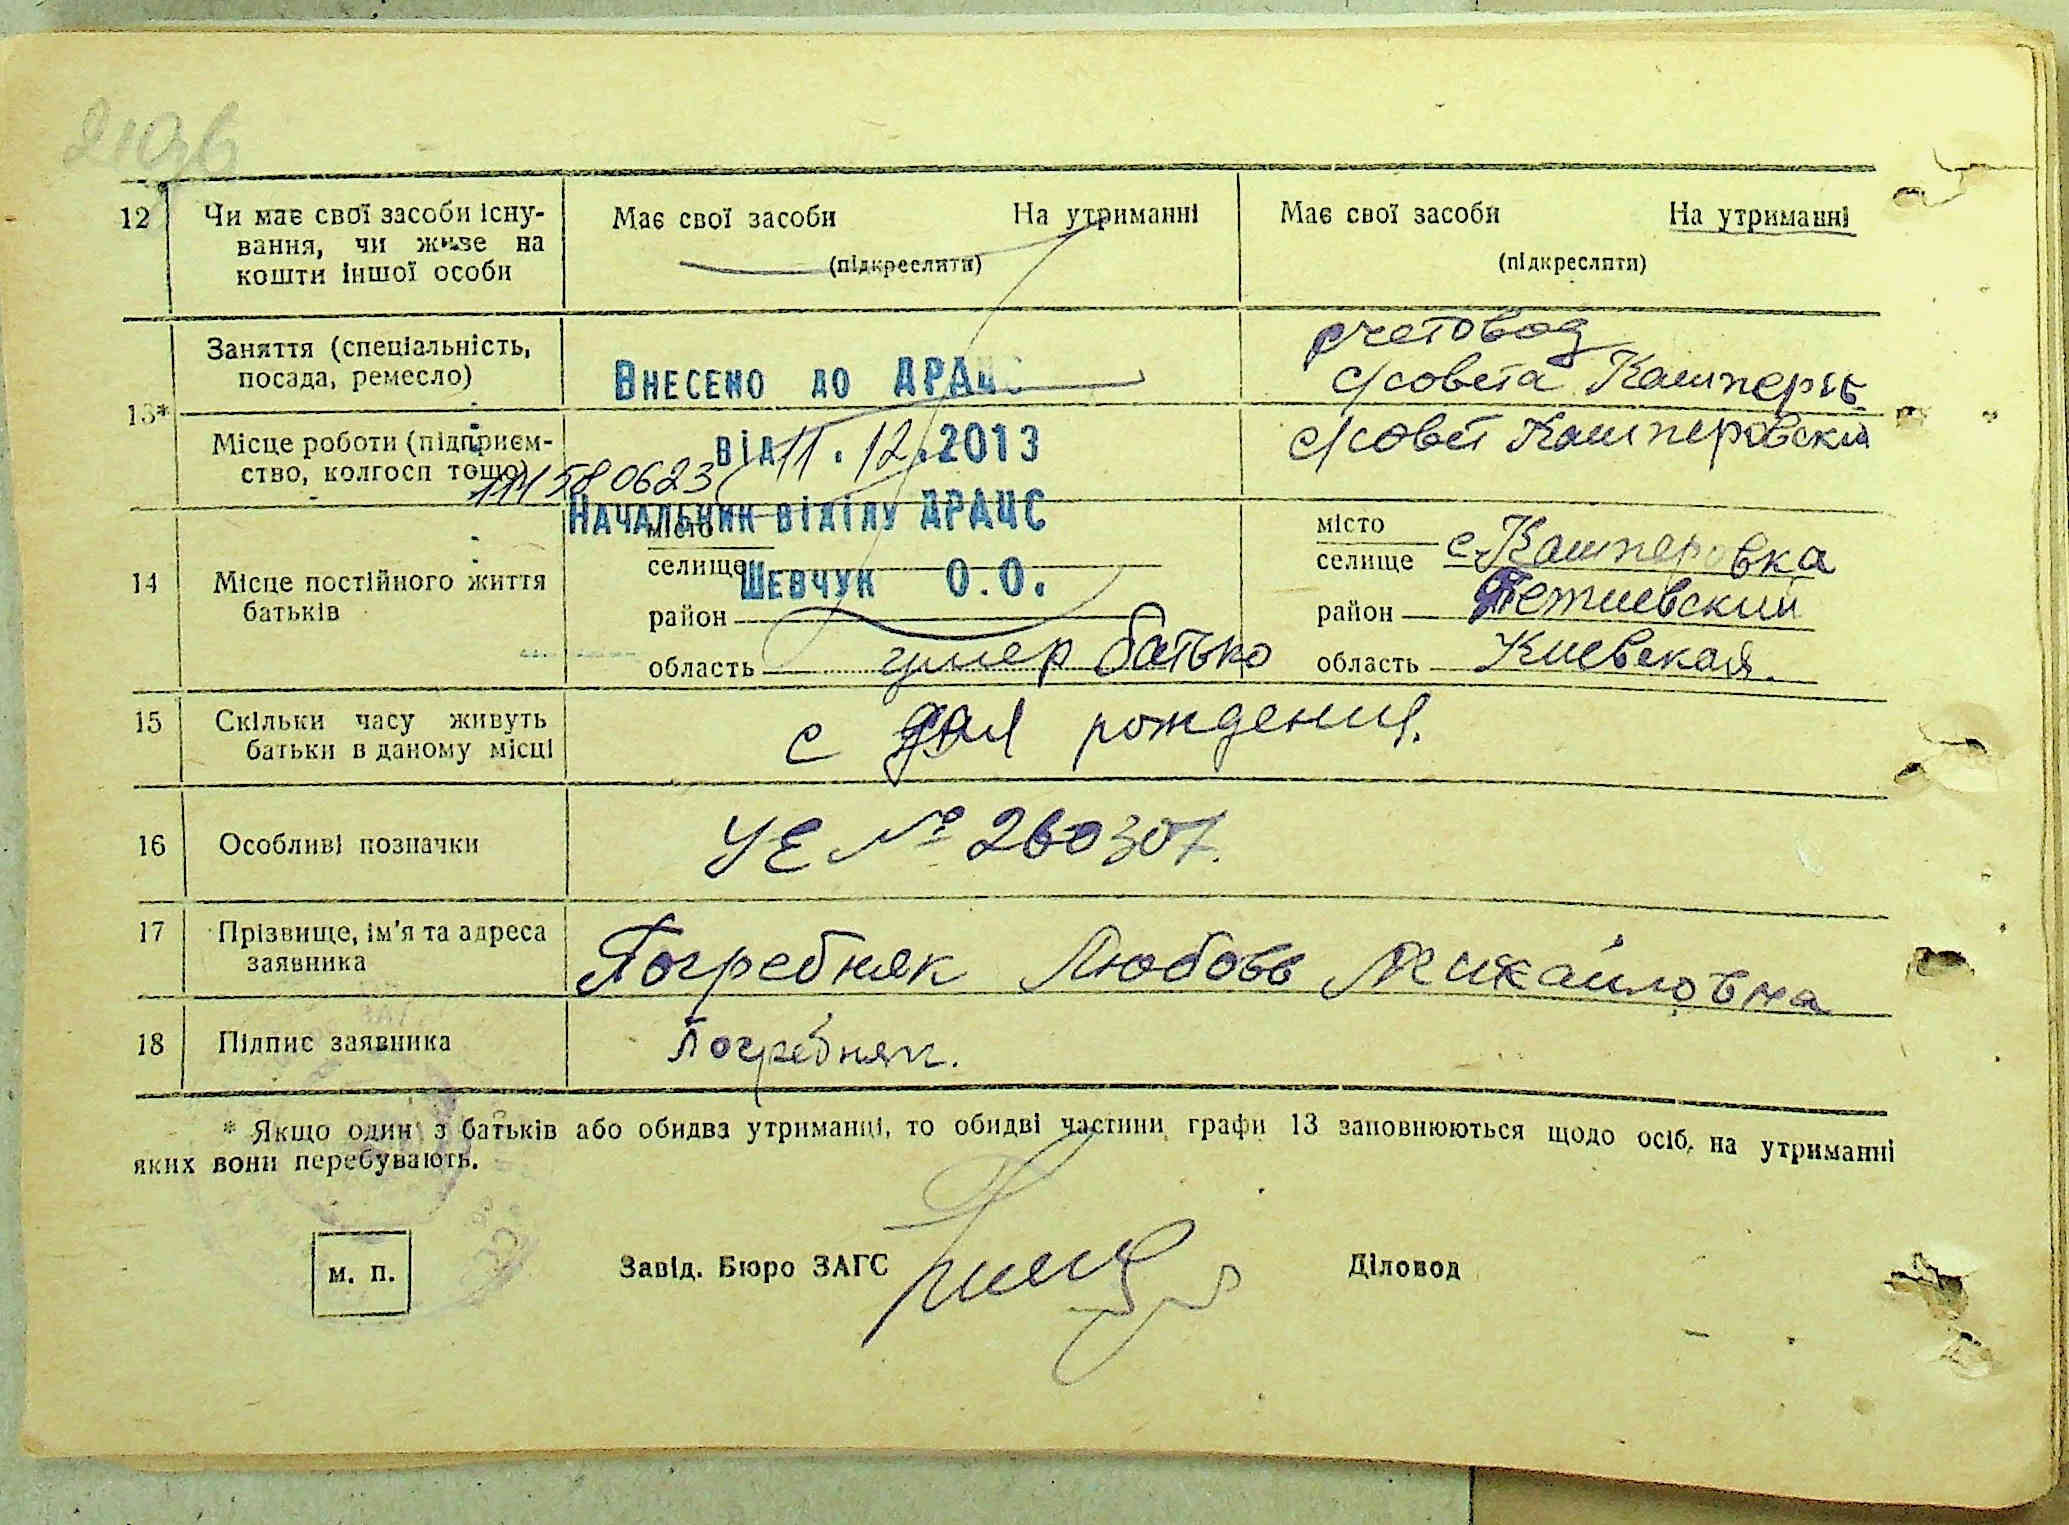 12 Чи має свої засоби існу-
вання, чи живе на
кошти іншої особи
Має свої засоби На утриманні
(підкреслити)
Має свої засоби На утриманні
(підкреслити)
13*
Заняття (спеціальність,
посада, ремесло)
Внесено до ДРАЦС
счетовод
с/совета Кашперів
Місце роботи (підприєм-
ство, колгосп тощо)
від 11.12.2013
580623
с/совет Кашперовский
14 Місце постійного життя
батьків
Начальник відділу ДРАЦС
Шевчук О.О.
місто
селище
район
область умер батько
місто
селище с. Кашперовка
район Тетиевский
область Киевская.
15 Скільки часу живуть
батьки в даному місці
с дня рождения.
16 Особливі позначки
УЕ № 260307.
17 Прізвище, ім'я та адреса
заявника
Погребняк Любовь Михайловна
18 Підпис заявника
Погребняк.
* Якщо один з батьків або обидва утриманці, то обидві частини графи 13 заповнюються щодо осіб, на утриманні
яких вони перебувають.
м. п.
Завід. Бюро ЗАГС
Діловод